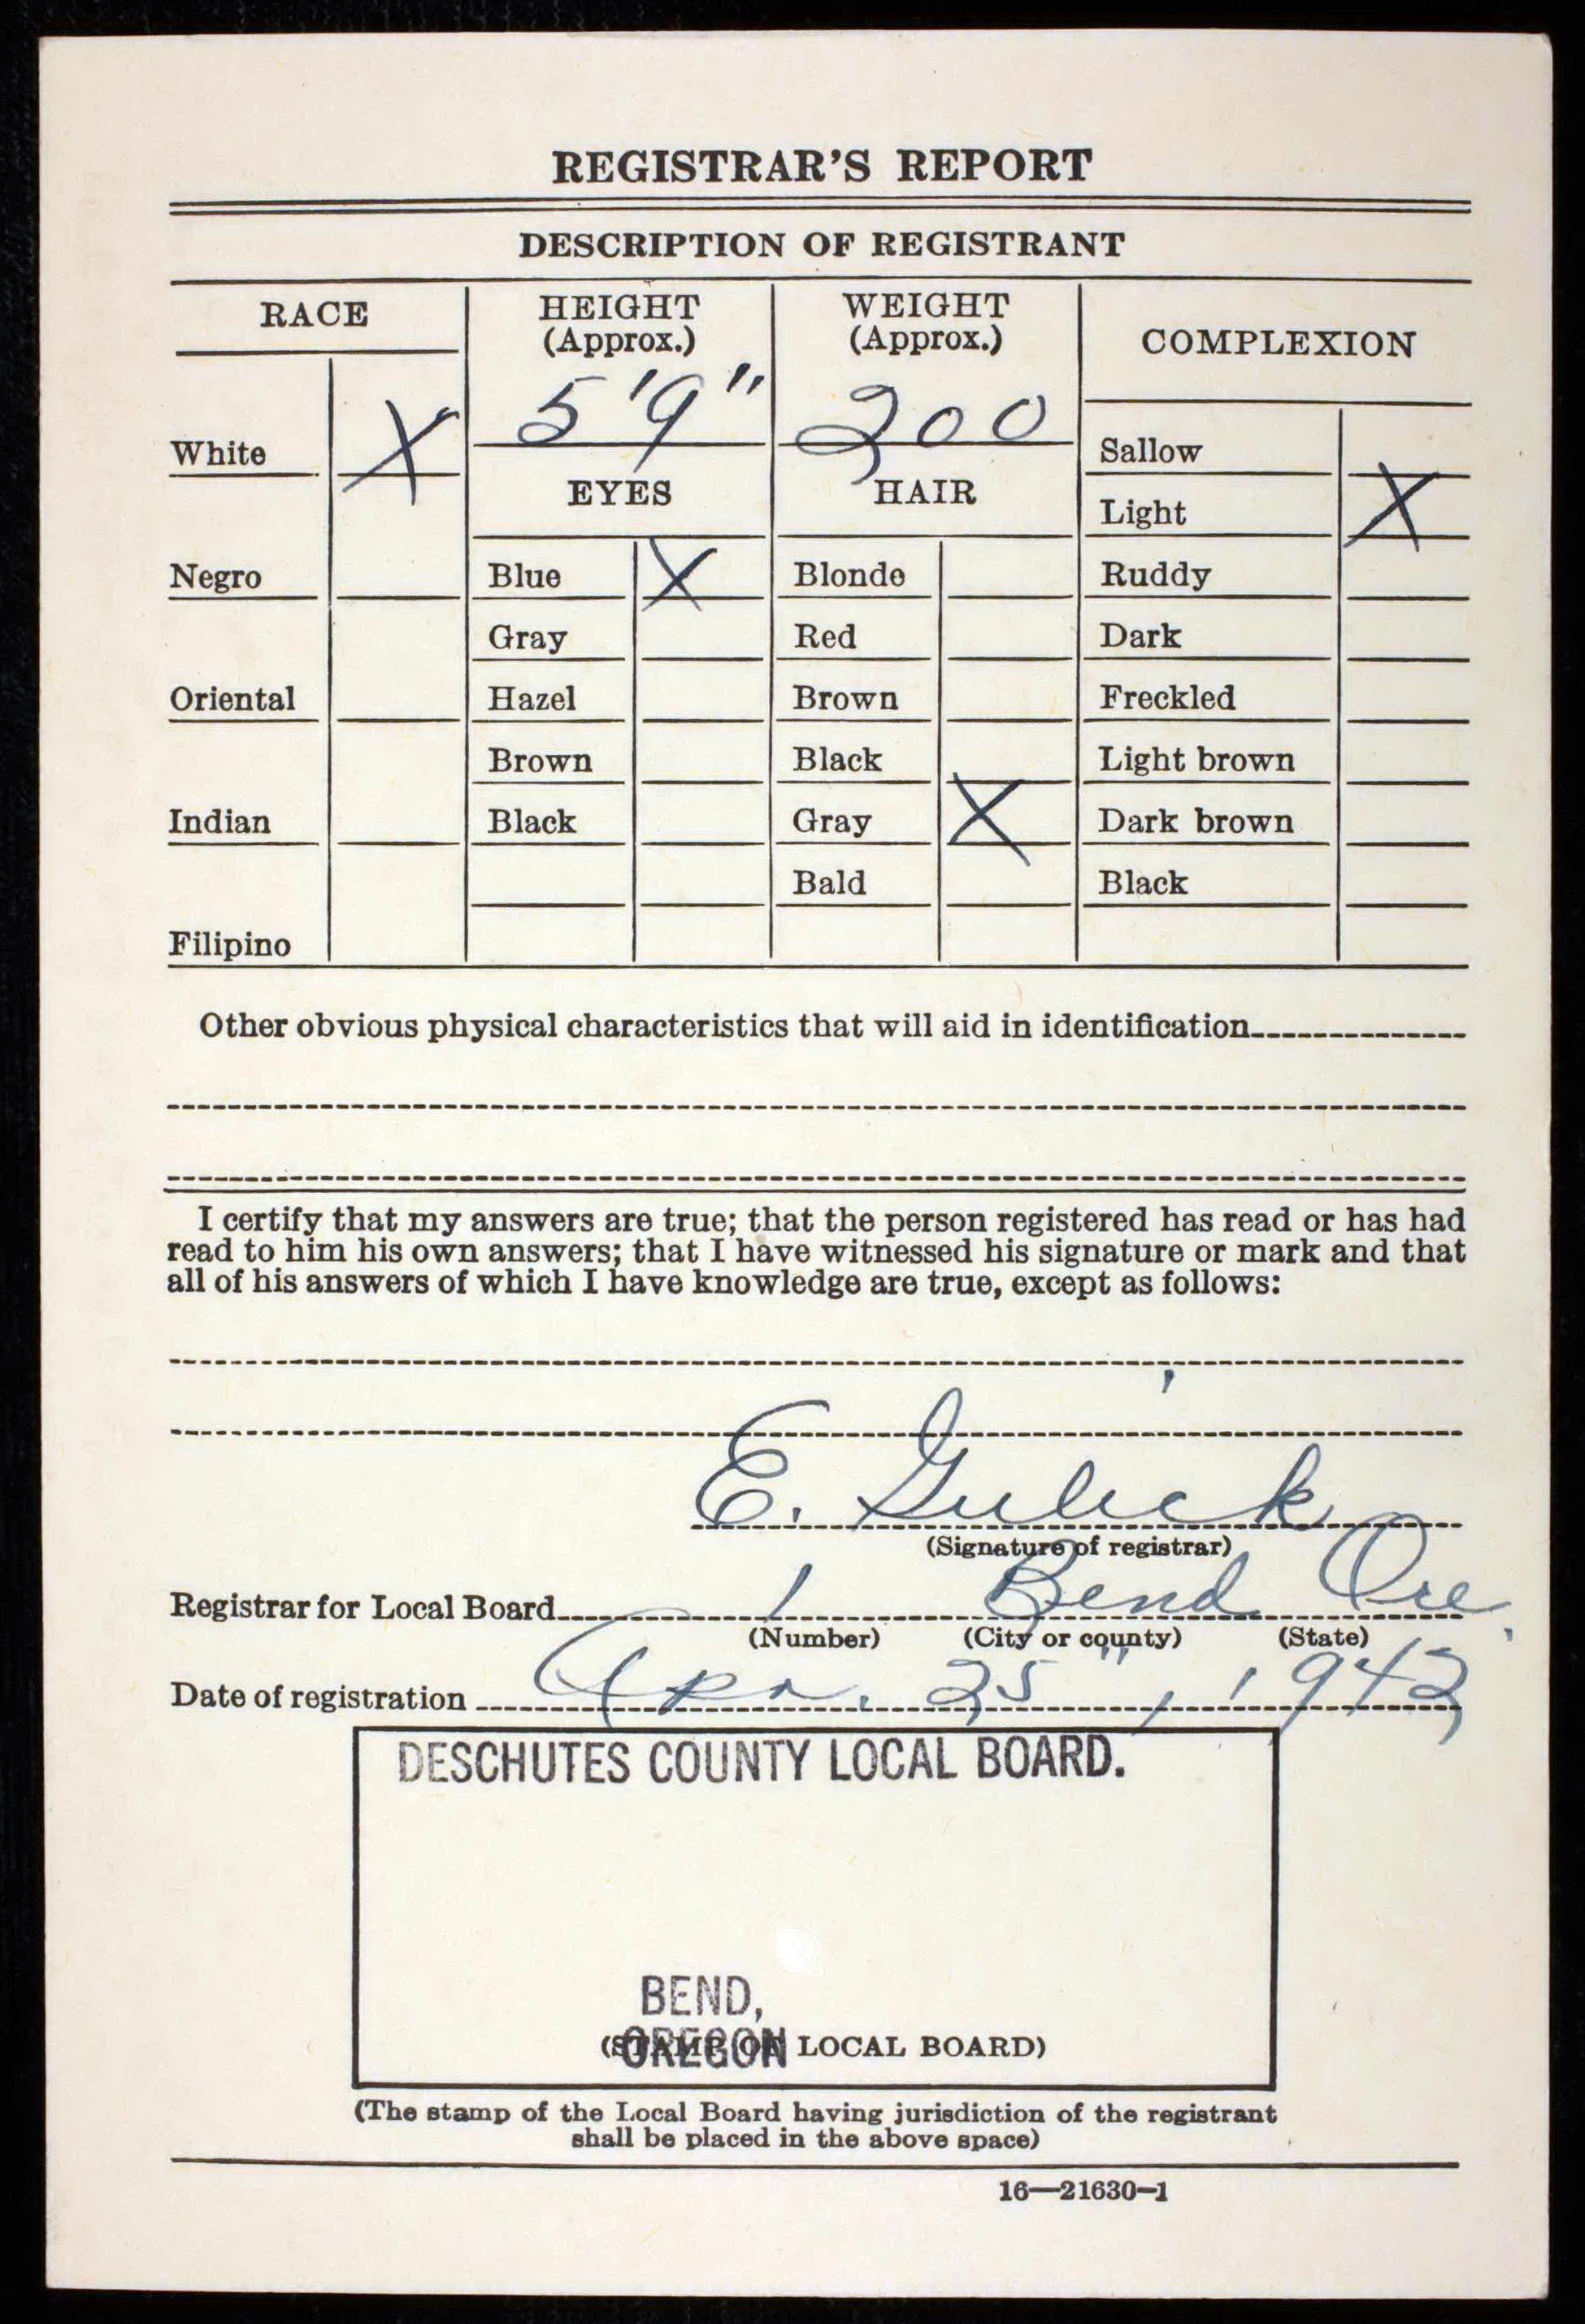 REGISTRAR'S REPORT
DESCRIPTION OF REGISTRANT
RACE
HEIGHT
(Approx.)
WEIGHT
(Approx.)
COMPLEXION
5'9"
200
White X
Sallow
EYES
HAIR
Light X
Negro
Blue X
Blonde
Ruddy
Gray
Red
Dark
Oriental
Hazel
Brown
Freckled
Brown
Black
Light brown
Indian
Black
Gray X
Dark brown
Bald
Black
Filipino
Other obvious physical characteristics that will aid in identification
I certify that my answers are true; that the person registered has read or has had
read to him his own answers; that I have witnessed his signature or mark and that
all of his answers of which I have knowledge are true, except as follows:
E. Gulick
(Signature of registrar)
Registrar for Local Board 1 Bend Ore.
(Number) (City or county) (State)
Date of registration Apr. 25", 1942
DESCHUTES COUNTY LOCAL BOARD.
BEND,
OREGON
(STAMP OF LOCAL BOARD)
(The stamp of the Local Board having jurisdiction of the registrant
shall be placed in the above space)
16—21630-1